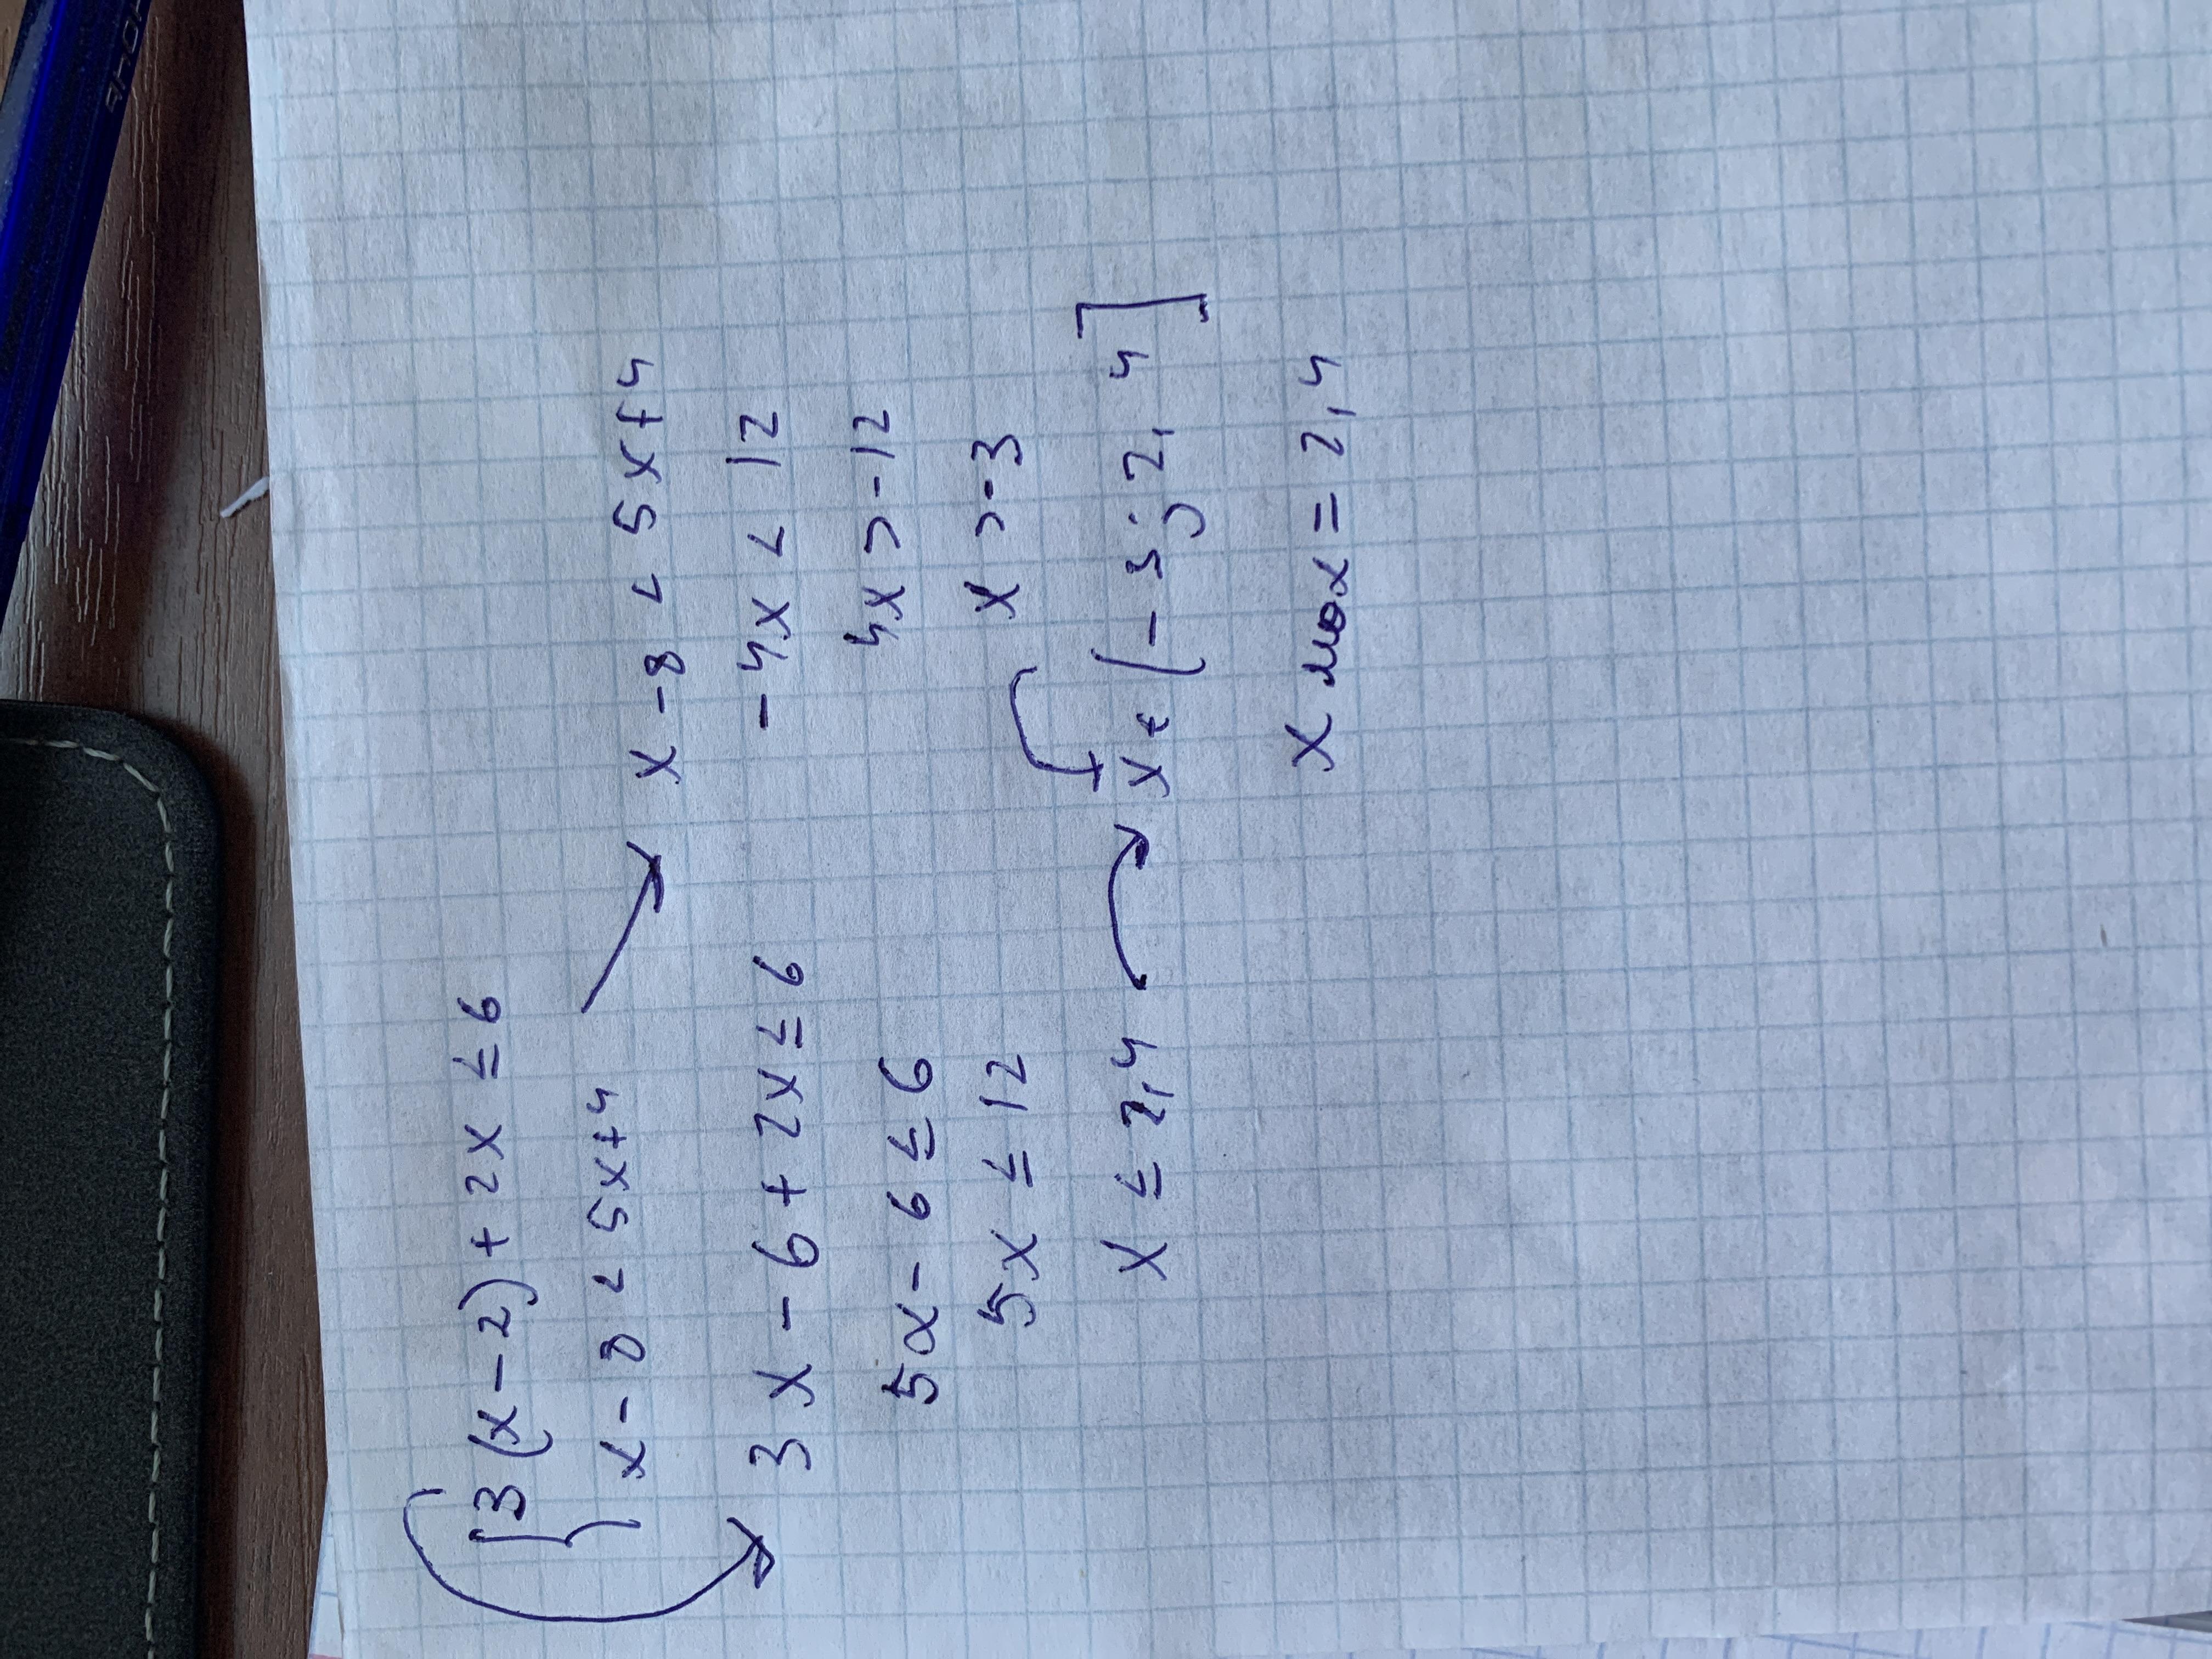 { 3(x-2)+2x ≤ 6
x-8 < 5x+4
3x-6+2x ≤ 6
5x-6 ≤ 6
5x ≤ 12
x ≤ 2,4
x-8 < 5x+4
-4x < 12
4x > -12
x > -3
x ∈ (-3; 2,4]
x max = 2,4